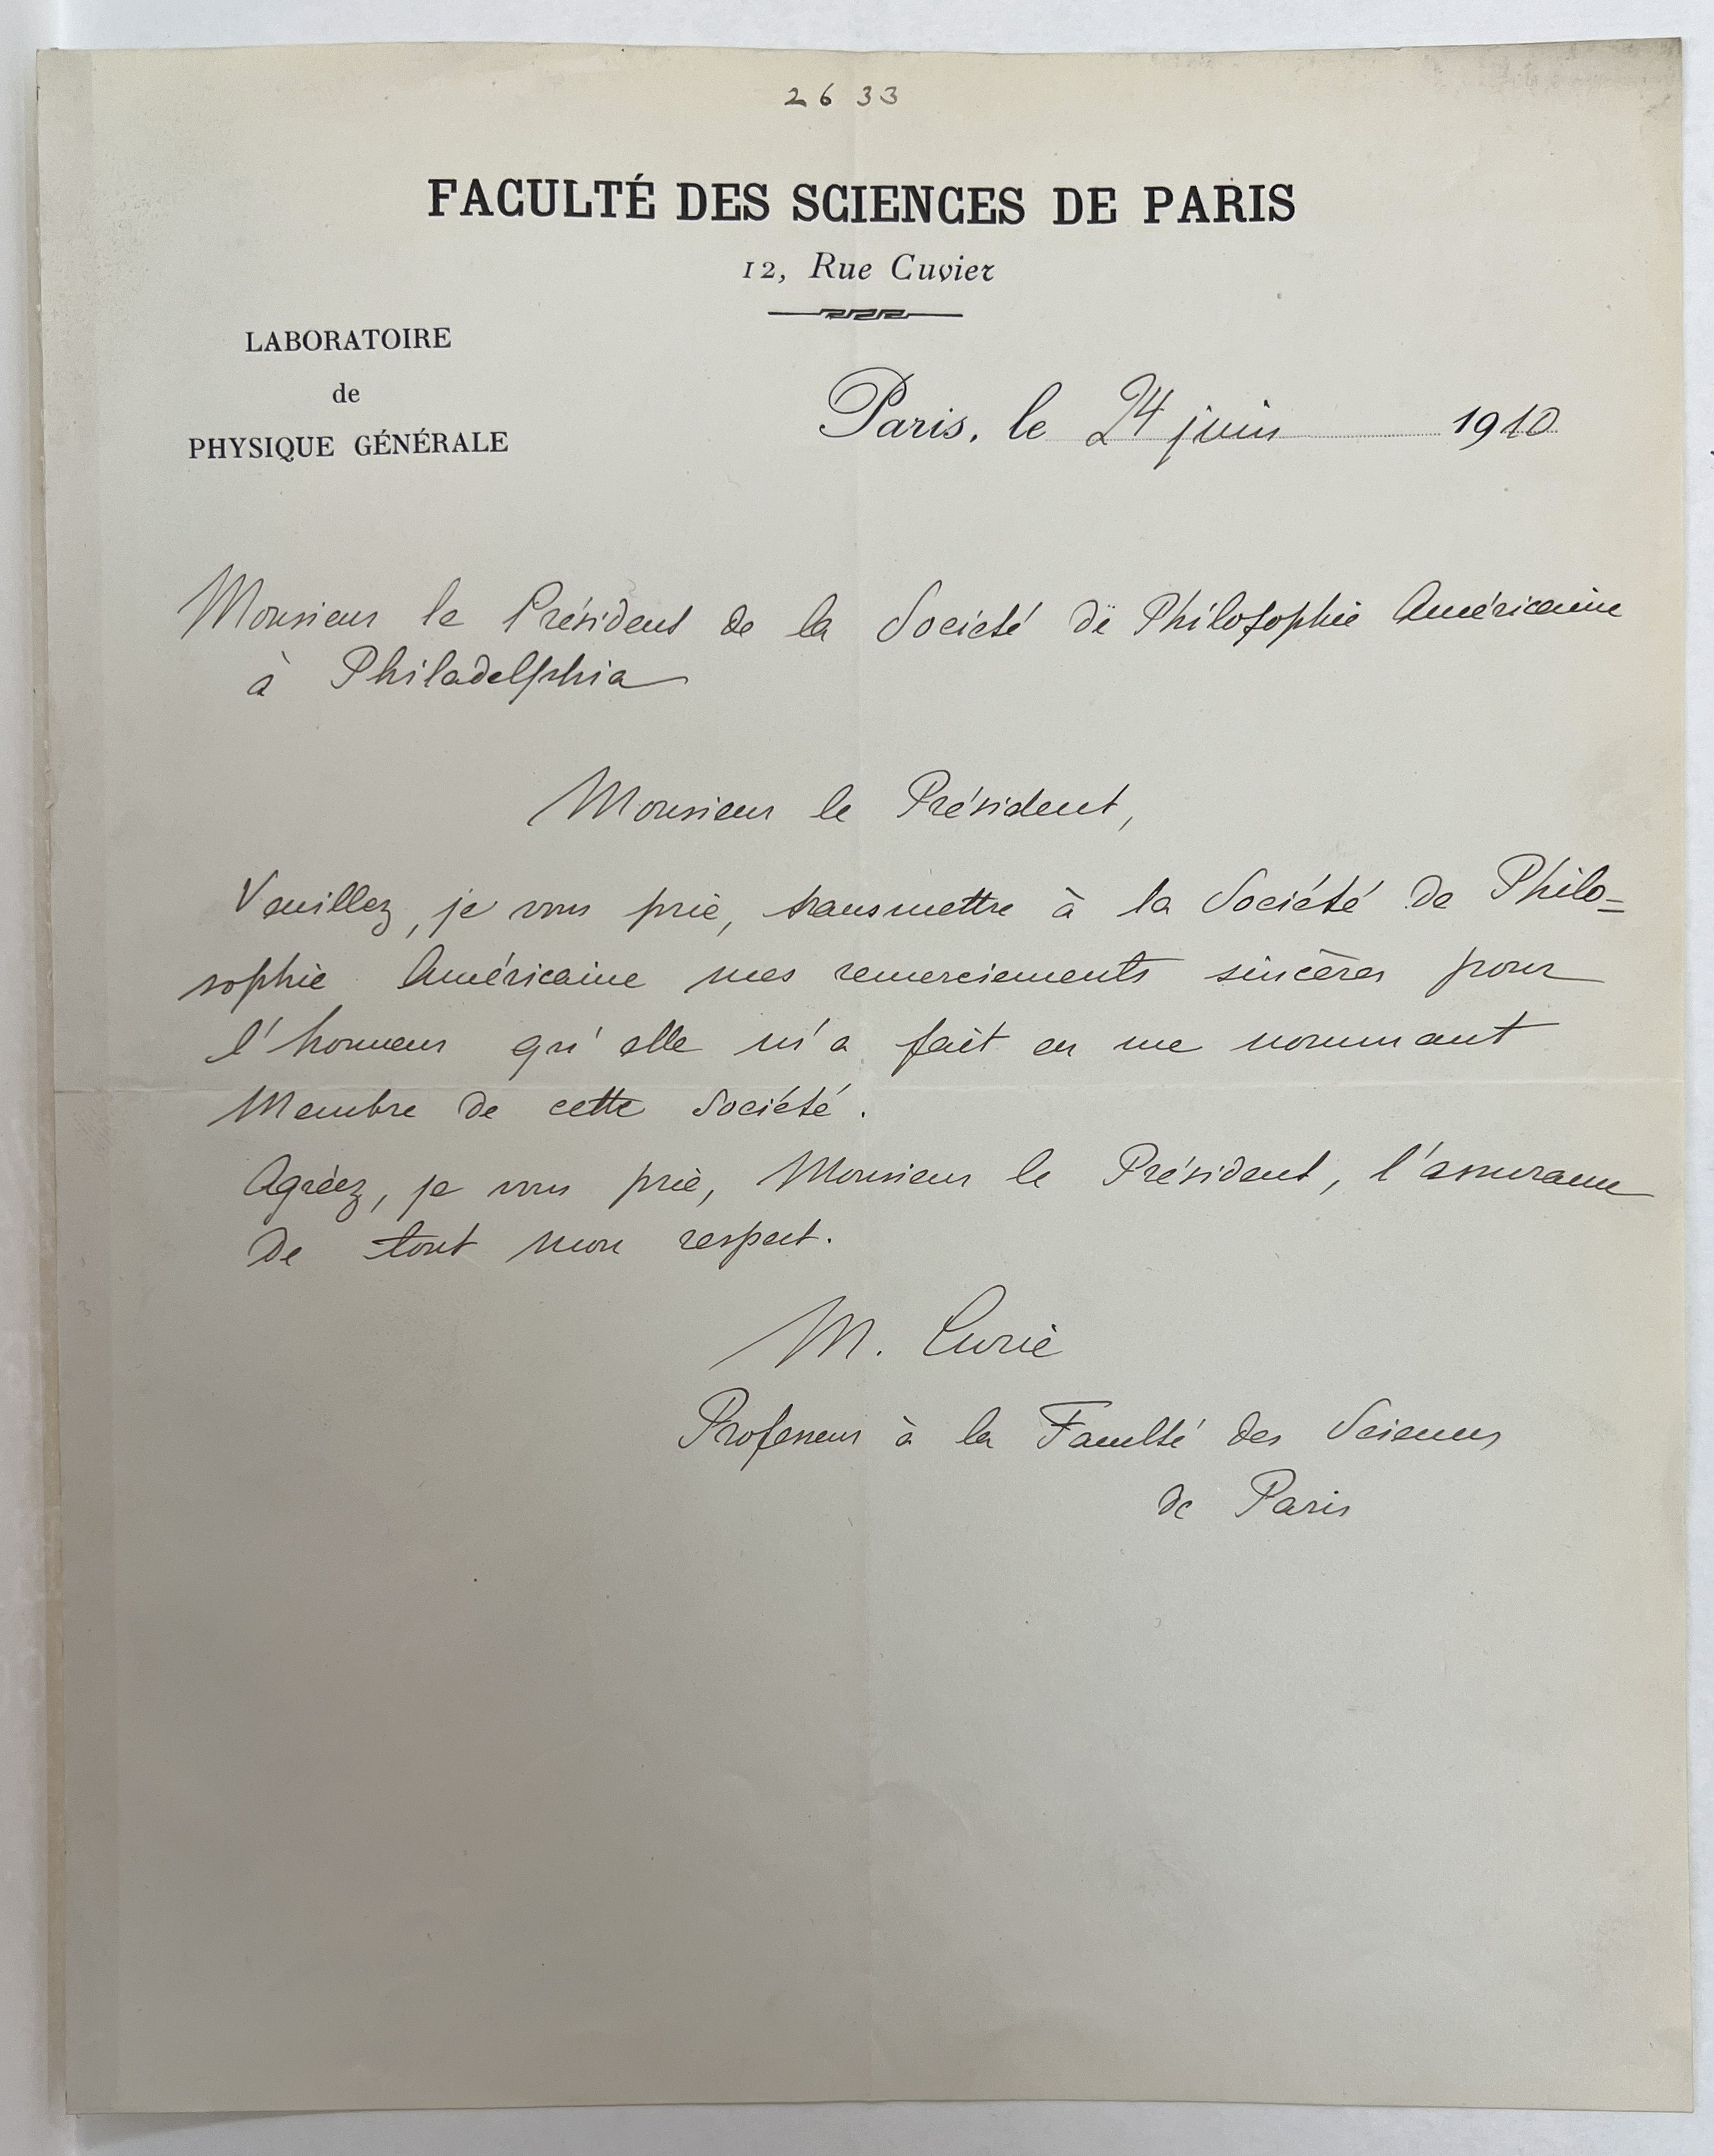 2633
FACULTÉ DES SCIENCES DE PARIS
12, Rue Cuvier
LABORATOIRE
de
PHYSIQUE GÉNÉRALE
Paris, le 24 juin 1910
Monsieur le Président de la Société de Philosophie Américaine
à Philadelphia
Monsieur le Président,
Veuillez, je vous prie, transmettre à la Société de Philo=
sophie Américaine mes remerciements sincères pour
l'honneur qu'elle m'a fait en me nommant
Membre de cette Société.
Agréez, je vous prie, Monsieur le Président, l'assurance
de tout mon respect.
M. Curie
Professeur à la Faculté des Sciences
de Paris